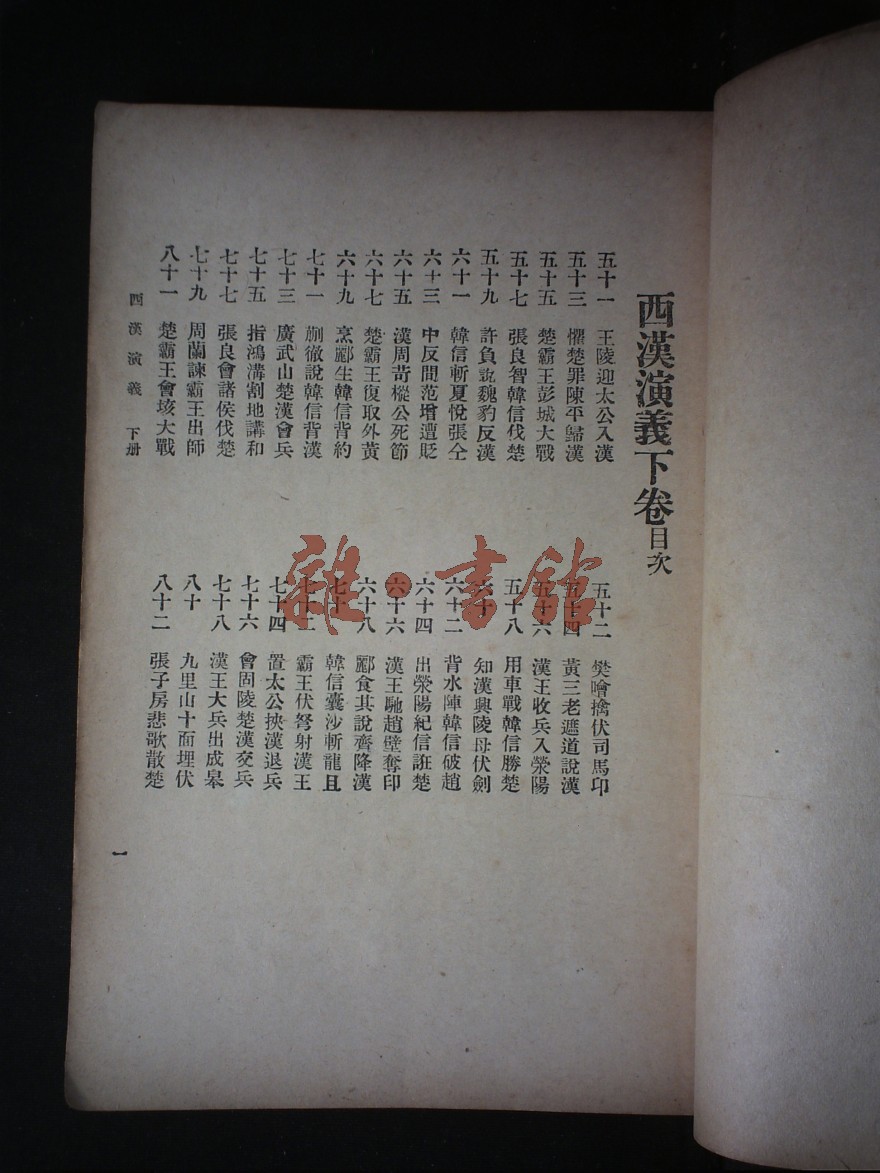 西漢演義下卷目次
五十一 王陵迎太公入漢
五十二 樊噲擒伏司馬印
五十三 懼楚罪陳平歸漢
五十四 黃三老遮道說漢
五十五 楚霸王彭城大戰
五十六 漢王收兵入滎陽
五十七 張良智韓信伐楚
五十八 用車戰韓信勝楚
五十九 許負說魏豹反漢
六十 知漢興陵母伏劍
六十一 韓信斬夏悅張仝
六十二 背水陣韓信破趙
六十三 中反間范增遭貶
六十四 出滎陽紀信誑楚
六十五 漢周苛樅公死節
六十六 漢王馳趙壁奪印
六十七 楚霸王復取外黃
六十八 酈食其說齊降漢
六十九 烹酈生韓信背約
七十 韓信囊沙斬龍且
七十一 蒯徹說韓信背漢
七十二 霸王伏弩射漢王
七十三 廣武山楚漢會兵
七十四 置太公挾漢退兵
七十五 指鴻溝割地講和
七十六 會固陵楚漢交兵
七十七 張良會諸侯伐楚
七十八 漢王大兵出成皋
七十九 周蘭諫霸王出師
八十 九里山十面埋伏
八十一 楚霸王會垓大戰
八十二 張子房悲歌散楚
西漢演義 下册
一
雜·書館